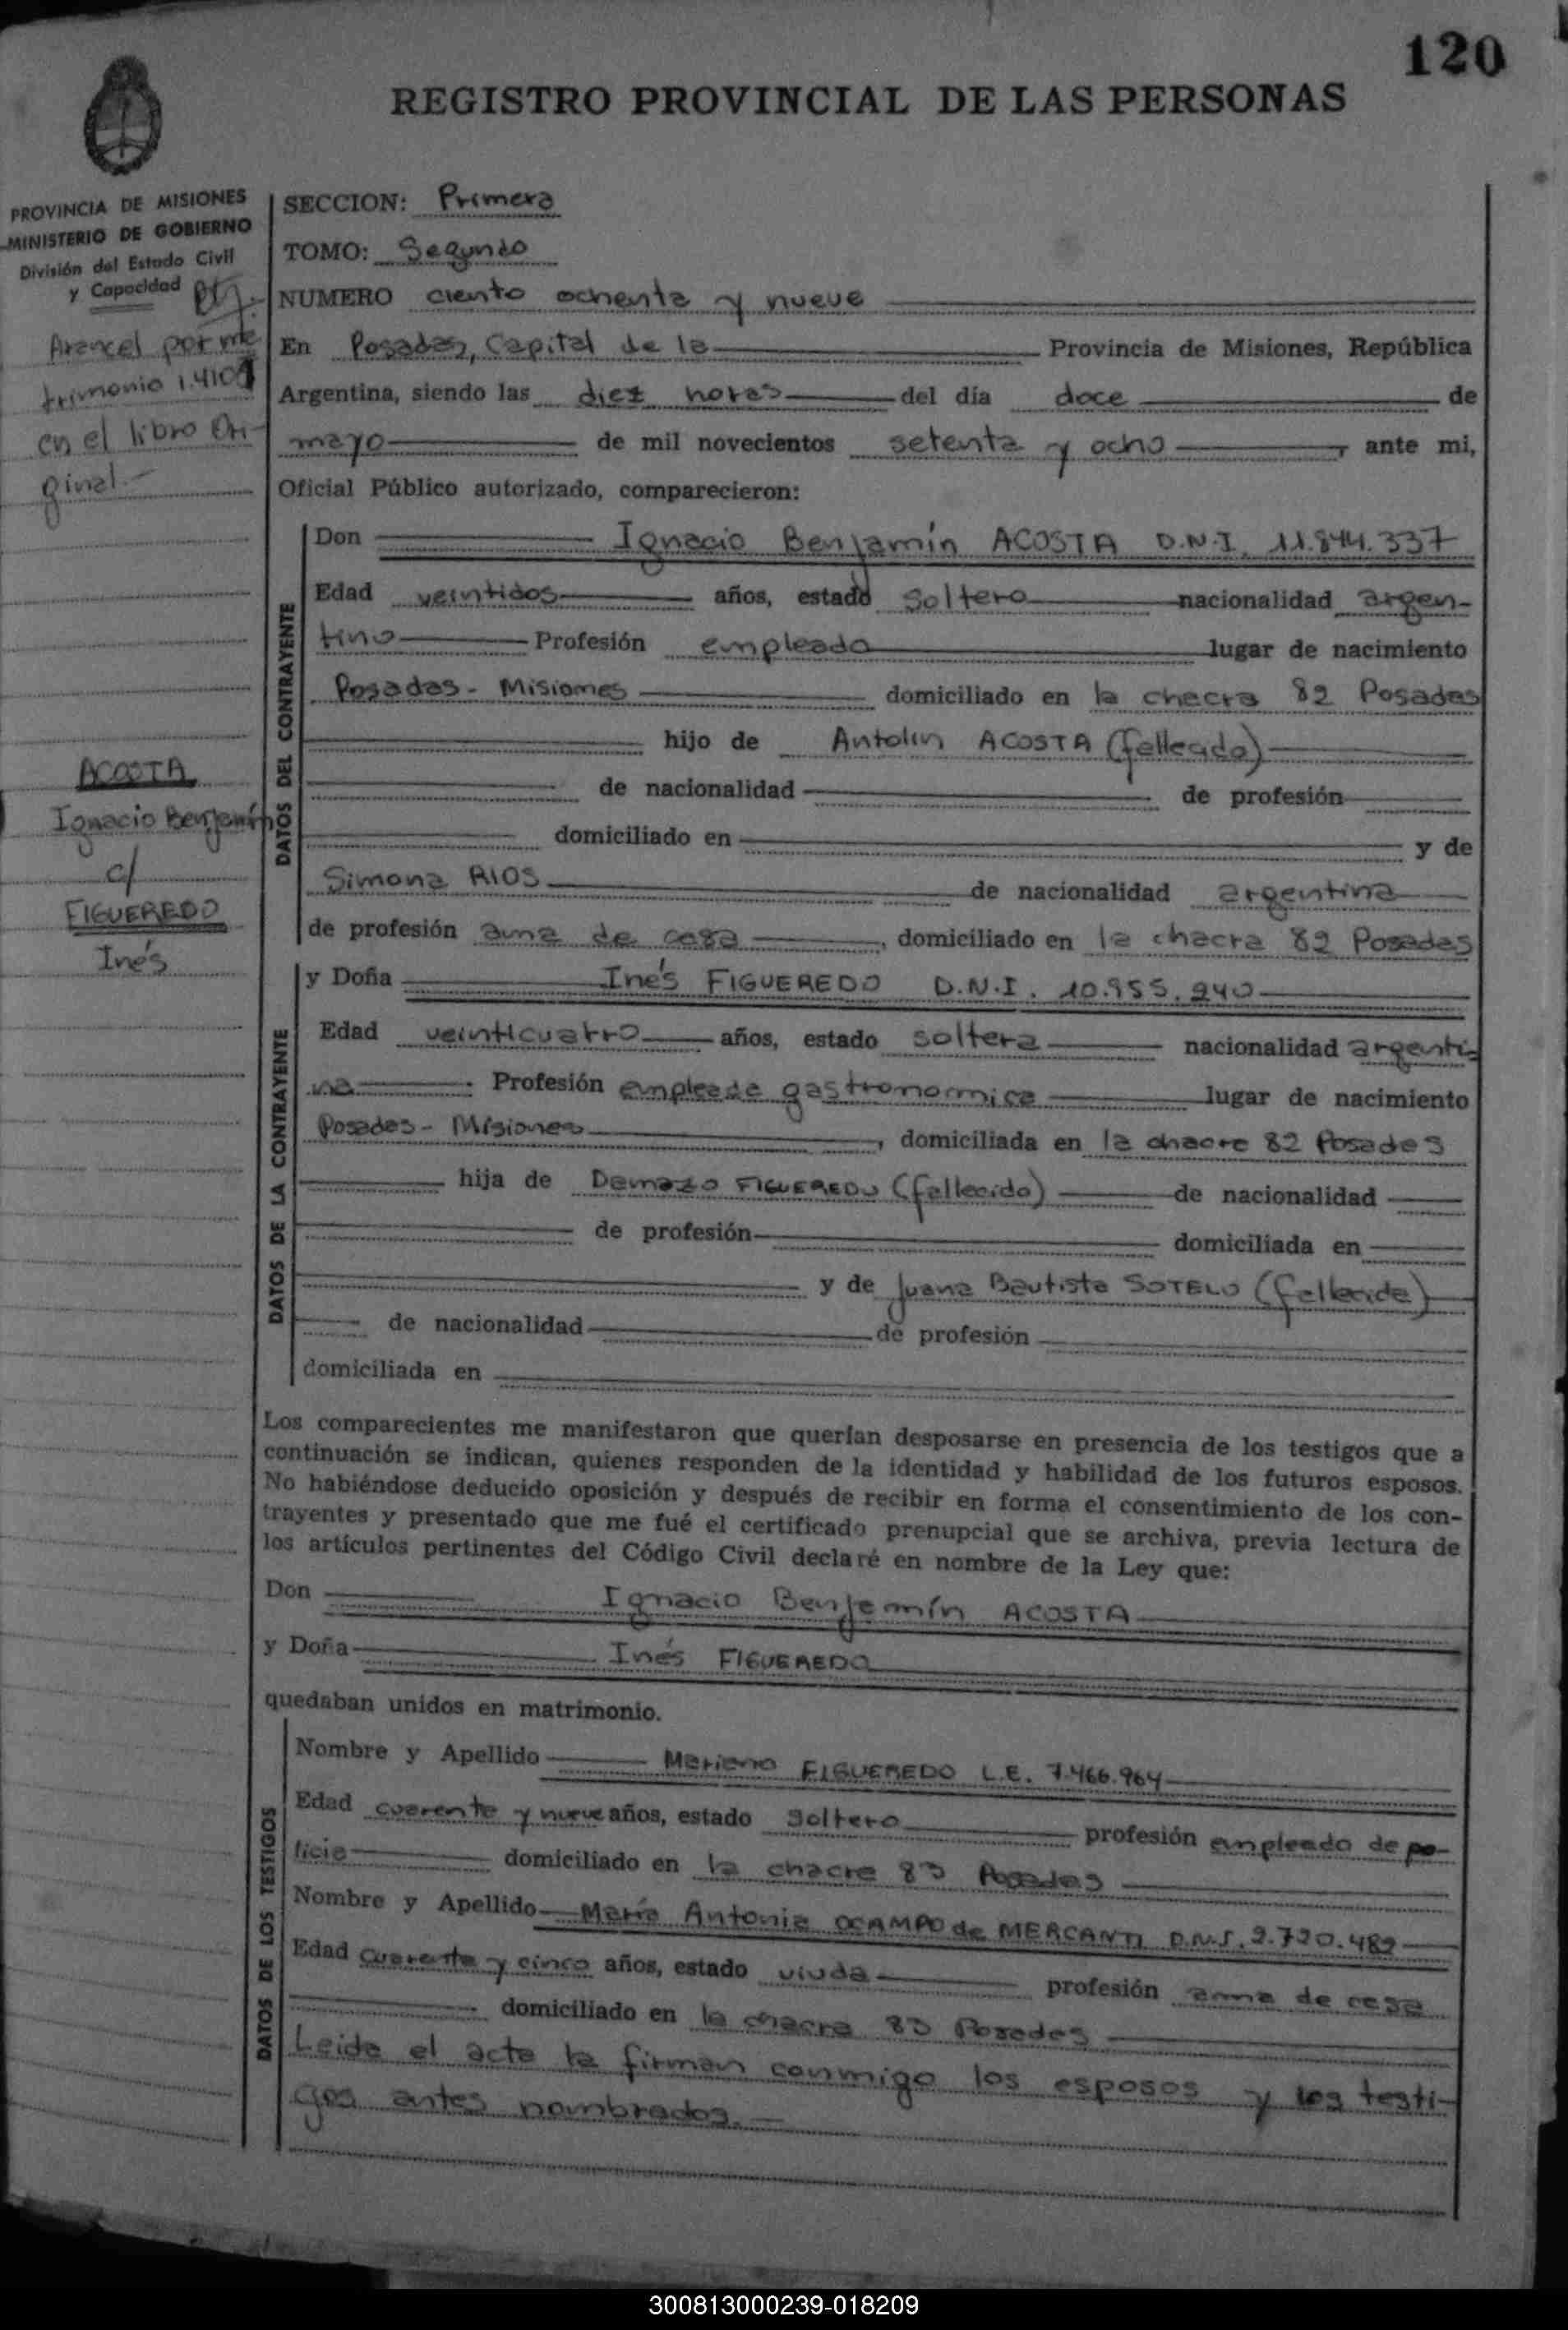 120
REGISTRO PROVINCIAL DE LAS PERSONAS
PROVINCIA DE MISIONES
MINISTERIO DE GOBIERNO
División del Estado Civil
y Capacidad
Arancel por ma
trimonio
en el libro Ori-
ginal.-
ACOSTA
Ignacio Benjamín
c/
FIGUEREDO
Inés
SECCION: Primera
TOMO: Segundo
NUMERO ciento ochenta y nueve
En Posadas, Capital de la Provincia de Misiones, República
Argentina, siendo las diez horas del día doce de
mayo de mil novecientos setenta y ocho, ante mi,
Oficial Público autorizado, comparecieron:
DATOS DEL CONTRAYENTE
Don Ignacio Benjamín ACOSTA D.N.I. 11.844.337
Edad veintidos años, estado soltero nacionalidad argen-
tino Profesión empleado lugar de nacimiento
Posadas - Misiones domiciliado en la chacra 82 Posadas
hijo de Antolin ACOSTA (fallecido)
de nacionalidad de profesión
domiciliado en y de
Simona RIOS de nacionalidad argentina
de profesión ama de casa, domiciliado en la chacra 82 Posadas
DATOS DE LA CONTRAYENTE
y Doña Inés FIGUEREDO D.N.I. 10.955.240
Edad veinticuatro años, estado soltera nacionalidad argenti-
na Profesión empleada gastronomica lugar de nacimiento
Posadas - Misiones, domiciliada en la chacra 82 Posadas
hija de Damazo FIGUEREDO (fallecido) de nacionalidad
de profesión domiciliada en
y de Juana Bautista SOTELO (fallecida)
de nacionalidad de profesión
domiciliada en
Los comparecientes me manifestaron que querían desposarse en presencia de los testigos que a
continuación se indican, quienes responden de la identidad y habilidad de los futuros esposos.
No habiéndose deducido oposición y después de recibir en forma el consentimiento de los con-
trayentes y presentado que me fué el certificado prenupcial que se archiva, previa lectura de
los artículos pertinentes del Código Civil declaré en nombre de la Ley que:
Don Ignacio Benjamín ACOSTA
y Doña Inés FIGUEREDO
quedaban unidos en matrimonio.
DATOS DE LOS TESTIGOS
Nombre y Apellido Mariano FIGUEREDO L.E. 7.466.964
Edad cuarenta y nueve años, estado soltero profesión empleado de po-
licia domiciliado en la chacra 83 Posadas
Nombre y Apellido María Antonia OCAMPO de MERCANTI D.N.I. 2.720.482
Edad cuarenta y cinco años, estado viuda profesión ama de casa
domiciliado en la chacra 83 Posadas
Leida el acta la firman conmigo los esposos y los testi-
gos antes nombrados.-
300813000239-018209